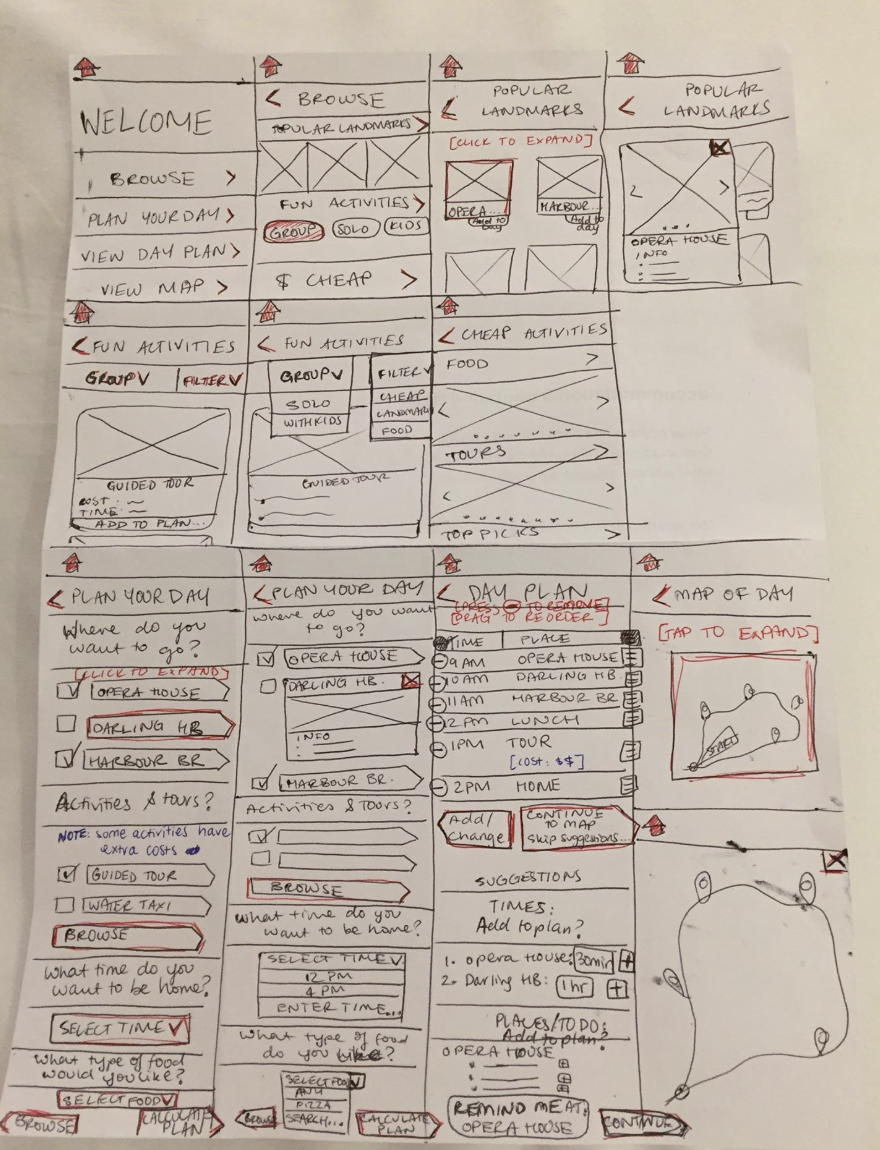 WELCOME
BROWSE >
PLAN YOUR DAY >
VIEW DAY PLAN >
VIEW MAP >
< BROWSE
POPULAR LANDMARKS >
FUN ACTIVITIES >
GROUP SOLO KIDS
$ CHEAP >
< POPULAR
LANDMARKS
[CLICK TO EXPAND]
OPERA... HARBOUR...
Add to
day
Add to
day
< POPULAR
LANDMARKS
OPERA HOUSE
INFO
< FUN ACTIVITIES
GROUP V FILTER V
GUIDED TOUR
COST:
TIME:
ADD TO PLAN...
< FUN ACTIVITIES
GROUP V FILTER V
SOLO
WITH KIDS
CHEAP
LANDMARK
FOOD
GUIDED TOUR
< CHEAP ACTIVITIES
FOOD >
TOURS >
TOP PICKS >
< PLAN YOUR DAY
Where do you
want to go?
[CLICK TO EXPAND]
OPERA HOUSE
DARLING HB
HARBOUR BR
Activities & tours?
NOTE: some activities have
extra costs
GUIDED TOUR
WATER TAXI
BROWSE
What time do you
want to be home?
SELECT TIME V
What type of food
would you like?
SELECT FOOD V
BROWSE CALCULATE
PLAN
< PLAN YOUR DAY
Where do you want
to go?
OPERA HOUSE
DARLING HB.
INFO
HARBOUR BR.
Activities & Tours?
BROWSE
What time do you
want to be home?
SELECT TIME V
12 PM
4 PM
ENTER TIME...
What type of food
do you like?
SELECT FOOD V
ANY
PIZZA
SEARCH...
BROWSE CALCULATE
PLAN
< DAY PLAN
[PRESS - TO REMOVE]
[DRAG TO REORDER]
TIME PLACE
9 AM OPERA HOUSE
10 AM DARLING HB.
11AM HARBOUR BR
12 PM LUNCH
1PM TOUR
[COST: $$]
2PM HOME
Add/
Change
CONTINUE
TO MAP
skip suggestions...
SUGGESTIONS
TIMES:
Add to plan?
1. opera House: 30min +
2. Darling HB: 1 hr +
PLACES/TO DO:
Add to plan?
OPERA HOUSE
REMIND ME AT:
OPERA HOUSE
CONTINUE
< MAP OF DAY
[TAP TO EXPAND]
START